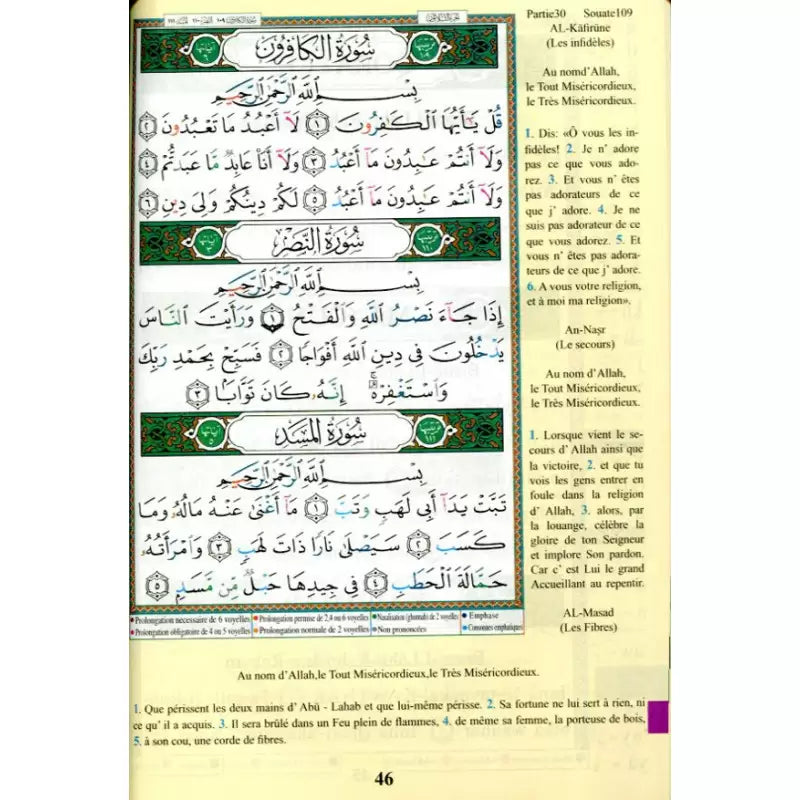 سُورَةُ الكَافِرُونَ
بِسْمِ اللَّهِ الرَّحْمَٰنِ الرَّحِيمِ
قُلْ يَٰٓأَيُّهَا ٱلْكَٰفِرُونَ ١ لَآ أَعْبُدُ مَا تَعْبُدُونَ ٢
وَلَآ أَنتُمْ عَٰبِدُونَ مَآ أَعْبُدُ ٣ وَلَآ أَنَا۠ عَابِدٌ مَّا عَبَدتُّمْ ٤
وَلَآ أَنتُمْ عَٰبِدُونَ مَآ أَعْبُدُ ٥ لَكُمْ دِينُكُمْ وَلِىَ دِينِ ٦
سُورَةُ النَّصْرِ
بِسْمِ اللَّهِ الرَّحْمَٰنِ الرَّحِيمِ
إِذَا جَآءَ نَصْرُ ٱللَّهِ وَٱلْفَتْحُ ١ وَرَأَيْتَ ٱلنَّاسَ
يَدْخُلُونَ فِى دِينِ ٱللَّهِ أَفْوَاجًا ٢ فَسَبِّحْ بِحَمْدِ رَبِّكَ
وَٱسْتَغْفِرْهُ ۚ إِنَّهُۥ كَانَ تَوَّابًۢا ٣
سُورَةُ المَسَدِ
بِسْمِ اللَّهِ الرَّحْمَٰنِ الرَّحِيمِ
تَبَّتْ يَدَآ أَبِى لَهَبٍ وَتَبَّ ١ مَآ أَغْنَىٰ عَنْهُ مَالُهُۥ وَمَا
كَسَبَ ٢ سَيَصْلَىٰ نَارًا ذَاتَ لَهَبٍ ٣ وَٱمْرَأَتُهُۥ
حَمَّالَةَ ٱلْحَطَبِ ٤ فِى جِيدِهَا حَبْلٌ مِّن مَّسَدٍۭ ٥
Prolongation nécessaire de 6 voyelles Prolongation permise de 2,4 ou 6 voyelles Nasalisation (ghunnah) de 2 voyelles Emphase
Prolongation obligatoire de 4 ou 5 voyelles Prolongation normale de 2 voyelles Non prononcées Consonnes emphatiques
Partie30 Souate109
AL-Kāfirūne
(Les infidèles)
Au nomd'Allah,
le Tout Miséricordieux,
le Très Miséricordieux.
1. Dis: «Ô vous les in-
fidèles! 2. Je n' adore
pas ce que vous ado-
rez. 3. Et vous n' êtes
pas adorateurs de ce
que j' adore. 4. Je ne
suis pas adorateur de ce
que vous adorez. 5. Et
vous n' êtes pas adora-
teurs de ce que j' adore.
6. A vous votre religion,
et à moi ma religion».
An-Naṣr
(Le secours)
Au nom d'Allah,
le Tout Miséricordieux,
le Très Miséricordieux.
1. Lorsque vient le se-
cours d' Allah ainsi que
la victoire, 2. et que tu
vois les gens entrer en
foule dans la religion
d' Allah, 3. alors, par
la louange, célèbre la
gloire de ton Seigneur
et implore Son pardon.
Car c' est Lui le grand
Accueillant au repentir.
AL-Masad
(Les Fibres)
Au nom d'Allah,le Tout Miséricordieux,le Très Miséricordieux.
1. Que périssent les deux mains d' Abū - Lahab et que lui-même périsse. 2. Sa fortune ne lui sert à rien, ni
ce qu' il a acquis. 3. Il sera brûlé dans un Feu plein de flammes, 4. de même sa femme, la porteuse de bois,
5. à son cou, une corde de fibres.
46